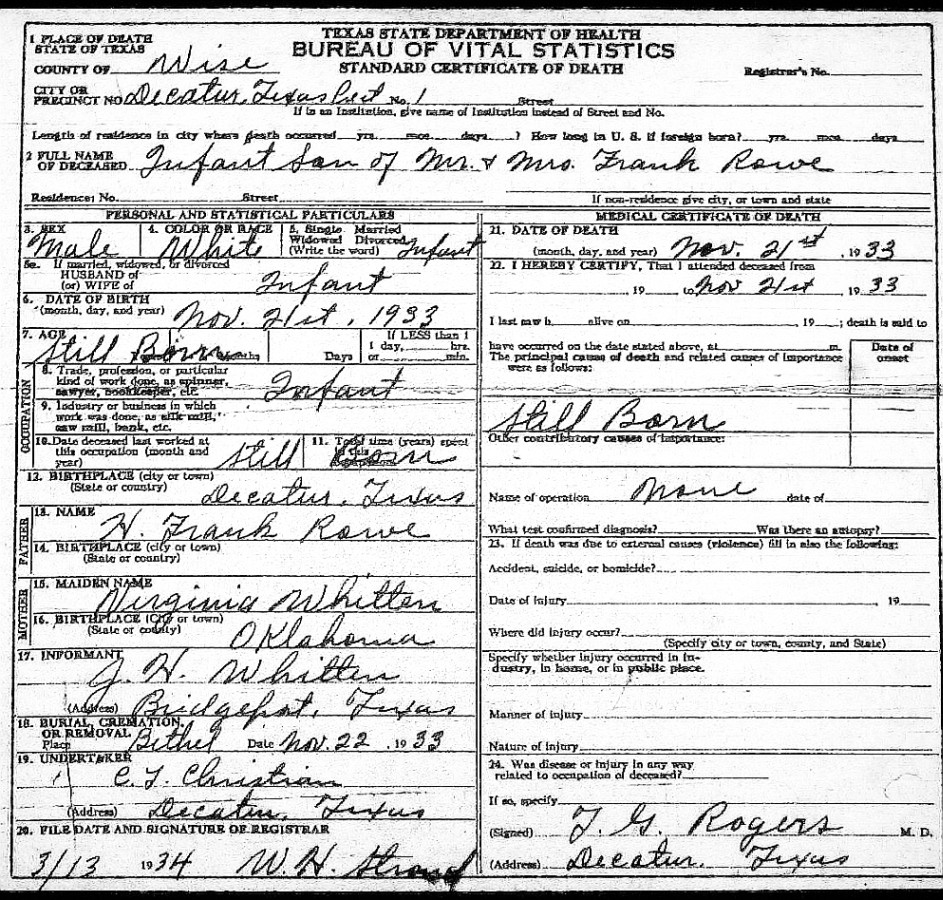 TEXAS STATE DEPARTMENT OF HEALTH
BUREAU OF VITAL STATISTICS
STANDARD CERTIFICATE OF DEATH
1 PLACE OF DEATH
STATE OF TEXAS
COUNTY OF Wise
Registrar's No.
CITY OR
PRECINCT NO. Decatur, Texas Pect No. 1 Street
If in an Institution, give name of Institution instead of Street and No.
Length of residence in city where death occurred yrs. mos. days ? How long in U. S. if foreign born? yrs. mos. days
2 FULL NAME
OF DECEASED Infant Son of Mr. & Mrs. Frank Rowe
Residence: No. Street If non-residence give city, or town and state
PERSONAL AND STATISTICAL PARTICULARS
3. SEX Male 4. COLOR OR RACE White 5. Single Married
Widowed Divorced
(Write the word) Infant
5a. If married, widowed, or divorced
HUSBAND of
(or) WIFE of Infant
6. DATE OF BIRTH
(month, day, and year) Nov. 21st, 1933
7. AGE Still Born Months Days If LESS than 1
1 day, hrs.
or min.
OCCUPATION
8. Trade, profession, or particular
kind of work done, as spinner,
sawyer, bookkeeper, etc. Infant
9. Industry or business in which
work was done, as silk mill,
saw mill, bank, etc.
10. Date deceased last worked at
this occupation (month and
year) Still 11. Total time (years) spent
in this
occupation Born
12. BIRTHPLACE (city or town)
(State or country) Decatur, Texas
FATHER
13. NAME H. Frank Rowe
14. BIRTHPLACE (city or town)
(State or country)
MOTHER
15. MAIDEN NAME Virginia Whitten
16. BIRTHPLACE (city or town)
(State or country) Oklahoma
17. INFORMANT J. H. Whitten
(Address) Bridgeport, Texas
18. BURIAL, CREMATION,
OR REMOVAL
Place Bethel Date Nov. 22 1933
19. UNDERTAKER
C. T. Christian
(Address) Decatur, Texas
20. FILE DATE AND SIGNATURE OF REGISTRAR
3/13 1934 W. H. Strong
MEDICAL CERTIFICATE OF DEATH
21. DATE OF DEATH
(month, day, and year) Nov. 21st, 1933
22. I HEREBY CERTIFY, That I attended deceased from
19 to Nov 21st 1933
I last saw h alive on 19 ; death is said to
have occurred on the date stated above, at m.
The principal cause of death and related causes of importance
were as follows:
Date of
onset
Still Born
Other contributory causes of importance:
Name of operation None date of
What test confirmed diagnosis? Was there an autopsy?
23. If death was due to external causes (violence) fill in also the following:
Accident, suicide, or homicide?
Date of injury 19
Where did injury occur?
(Specify city or town, county, and State)
Specify whether injury occurred in in-
dustry, in home, or in public place.
Manner of injury
Nature of injury
24. Was disease or injury in any way
related to occupation of deceased?
If so, specify
(Signed) T. G. Rogers M. D.
(Address) Decatur, Texas